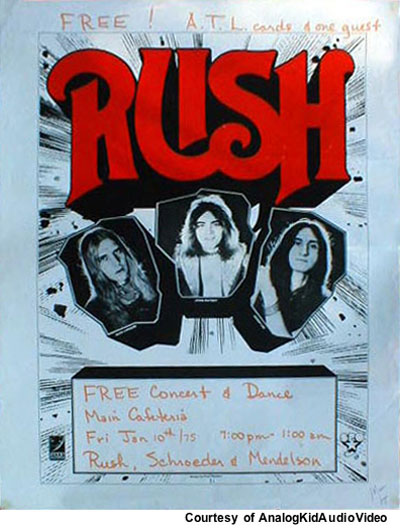 FREE ! A.T.L. cards & one guest
RUSH
FREE Concert & Dance
Main Cafeteria
Fri Jan 10th/75 7:00pm - 1:00 am
Rush, Schroeder & Mendelson
Courtesy of AnalogKidAudioVideo